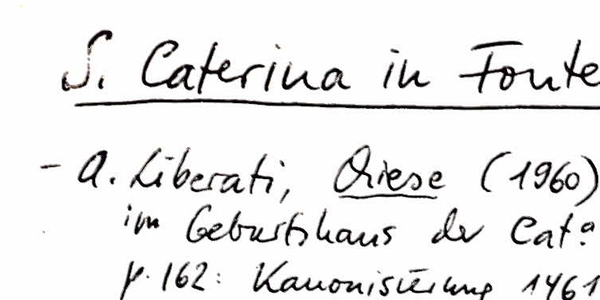 S. Caterina in Fonte
- A. Liberati, Chiese (1960)
im Geburtshaus der Cat.a
p. 162: Kanonisierung 1461